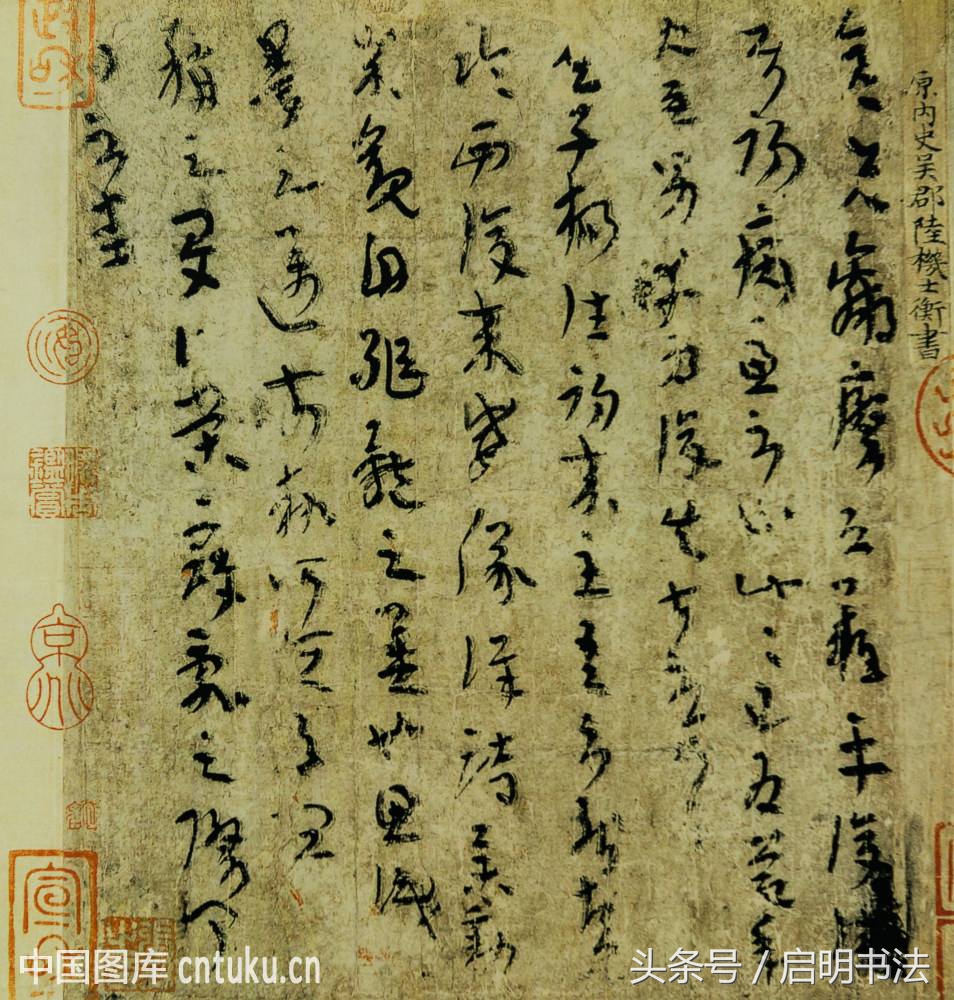 原内史吴郡陸機士衡書
彦先羸瘵恐難平復往屬
初病慮不止此此已為慶承
使唯男幸為復失前憂耳
吳子楊往初來主吾不能盡
臨西復來威儀詳跱舉動
成觀自軀體之美也思識
量之邁前執所恒有宜
稱之夏伯榮寇亂之際聞
問不悉
鑑賞
中国图库 cntuku.cn
头条号 / 启明书法